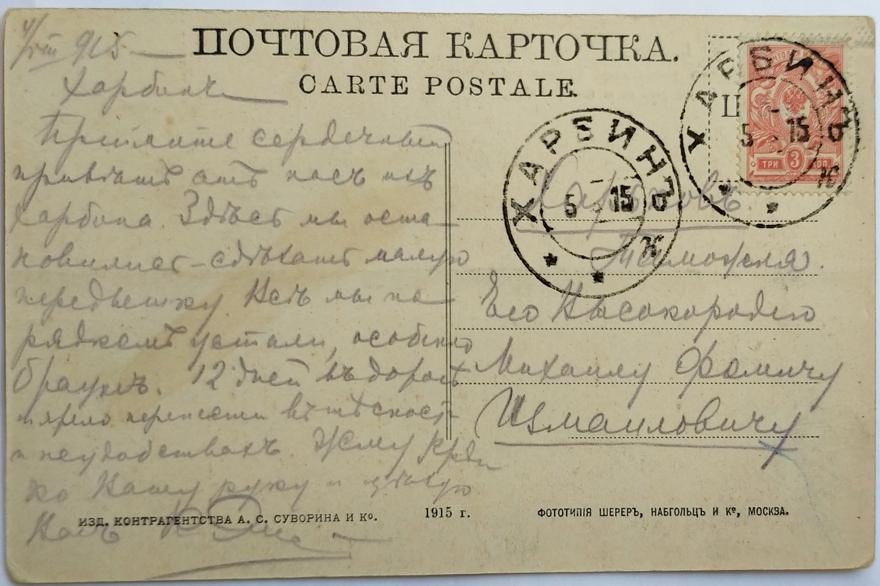 4/VIII 915
ПОЧТОВАЯ КАРТОЧКА.
CARTE POSTALE.
Харбинъ
Примите сердечный
привѣтъ отъ насъ изъ
Харбина. Здѣсь мы оста-
новились – сдѣлать малую
передышку Всѣ мы по-
рядкомъ устали, особенно
12 дней въ дорогѣ
перенести въ тѣсnості
и неудобствахъ. Жму крѣп-
ко Вашу руку и цѣлую
Васъ
ХАРБИНЪ
5 15
ХАРБИНЪ
5 15
ТРИ 3 КОП
Харьковъ
Таможня.
Его Высокородію
Михаилу Фомичу
Измаиловичу
ИЗД. КОНТРАГЕНТСТВА А. С. СУВОРИНА И Ко. 1915 г. ФОТОТИПІЯ ШЕРЕРЪ, НАБГОЛЬЦЪ И Ко, МОСКВА.